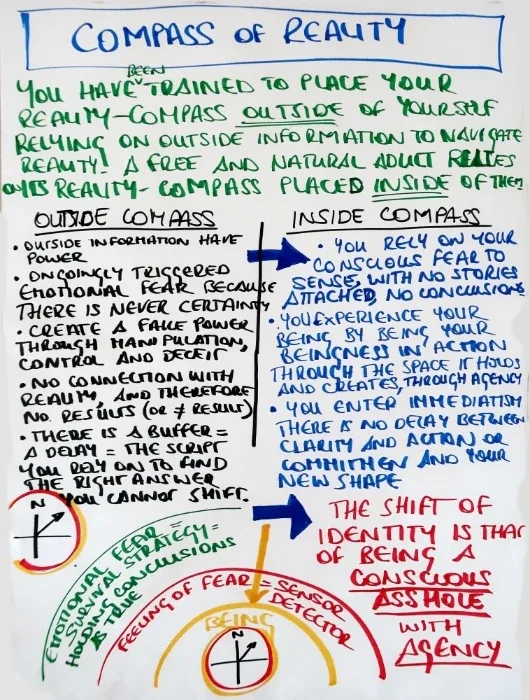 COMPASS OF REALITY
BEEN
YOU HAVE TRAINED TO PLACE YOUR
REALITY-COMPASS OUTSIDE OF YOURSELF
RELYING ON OUTSIDE INFORMATION TO NAVIGATE
REALITY! A FREE AND NATURAL ADULT RELIES
ON ITS REALITY-COMPASS PLACED INSIDE OF THEM
OUTSIDE COMPASS
• OUTSIDE INFORMATION HAVE
POWER
• ONGOINGLY TRIGGERED
EMOTIONAL FEAR BECAUSE
THERE IS NEVER CERTAINTY
• CREATE A FAKE POWER
THROUGH MANIPULATION,
CONTROL AND DECEIT
• NO CONNECTION WITH
REALITY, AND THEREFORE
NO RESULTS (OR ≠ RESULT)
• THERE IS A BUFFER =
A DELAY = THE SCRIPT
YOU RELY ON TO FIND
THE RIGHT ANSWER
YOU CANNOT SHIFT.
INSIDE COMPASS
• YOU RELY ON YOUR
CONSCIOUS FEAR TO
SENSE, WITH NO STORIES
ATTACHED, NO CONCLUSIONS
• YOU EXPERIENCE YOUR
BEING BY BEING YOUR
BEINGNESS IN ACTION
THROUGH THE SPACE IT HOLDS
AND CREATES, THROUGH AGENCY
• YOU ENTER IMMEDIATISM
THERE IS NO DELAY BETWEEN
CLARITY AND ACTION OR
COMMITMEN AND YOUR
NEW SHAPE
N
EMOTIONAL FEAR =
SURVIVAL STRATEGY =
HOLDING CONCLUSIONS
AS TRUE
FEELING OF FEAR = SENSOR
DETECTOR
BEING
N
THE SHIFT OF
IDENTITY IS THAT
OF BEING A
CONSCIOUS
ASSHOLE
WITH
AGENCY